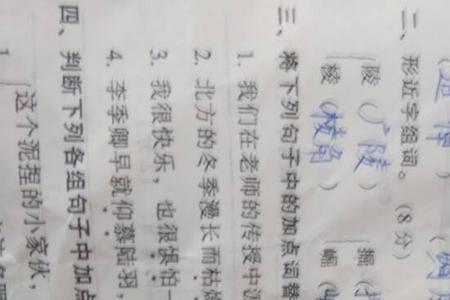 二、形近字组词。(8分)
陵(广陵) 掘(
棱(棱角) 崛(
三、将下列句子中的加点词替
1. 我们在老师的传授中
2. 北方的冬季漫长而枯
3. 我很快乐,也很惧怕一
4. 李季卿早就仰慕陆羽,
四、判断下列各组句子中加点
1. 这个泥捏的小家伙,